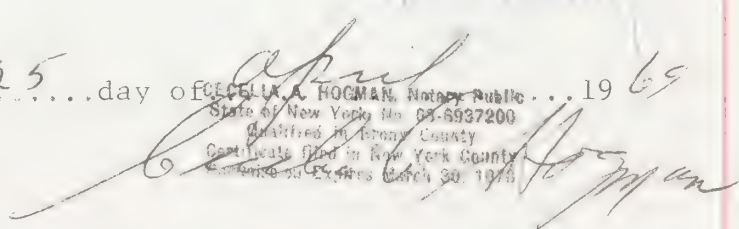 25 day of April 1969
CECELIA A. HOGMAN, Notary Public
State of New York No. 03-6937200
Qualified in Bronx County
Certificate filed in New York County
Commission Expires March 30, 1970
Hogman